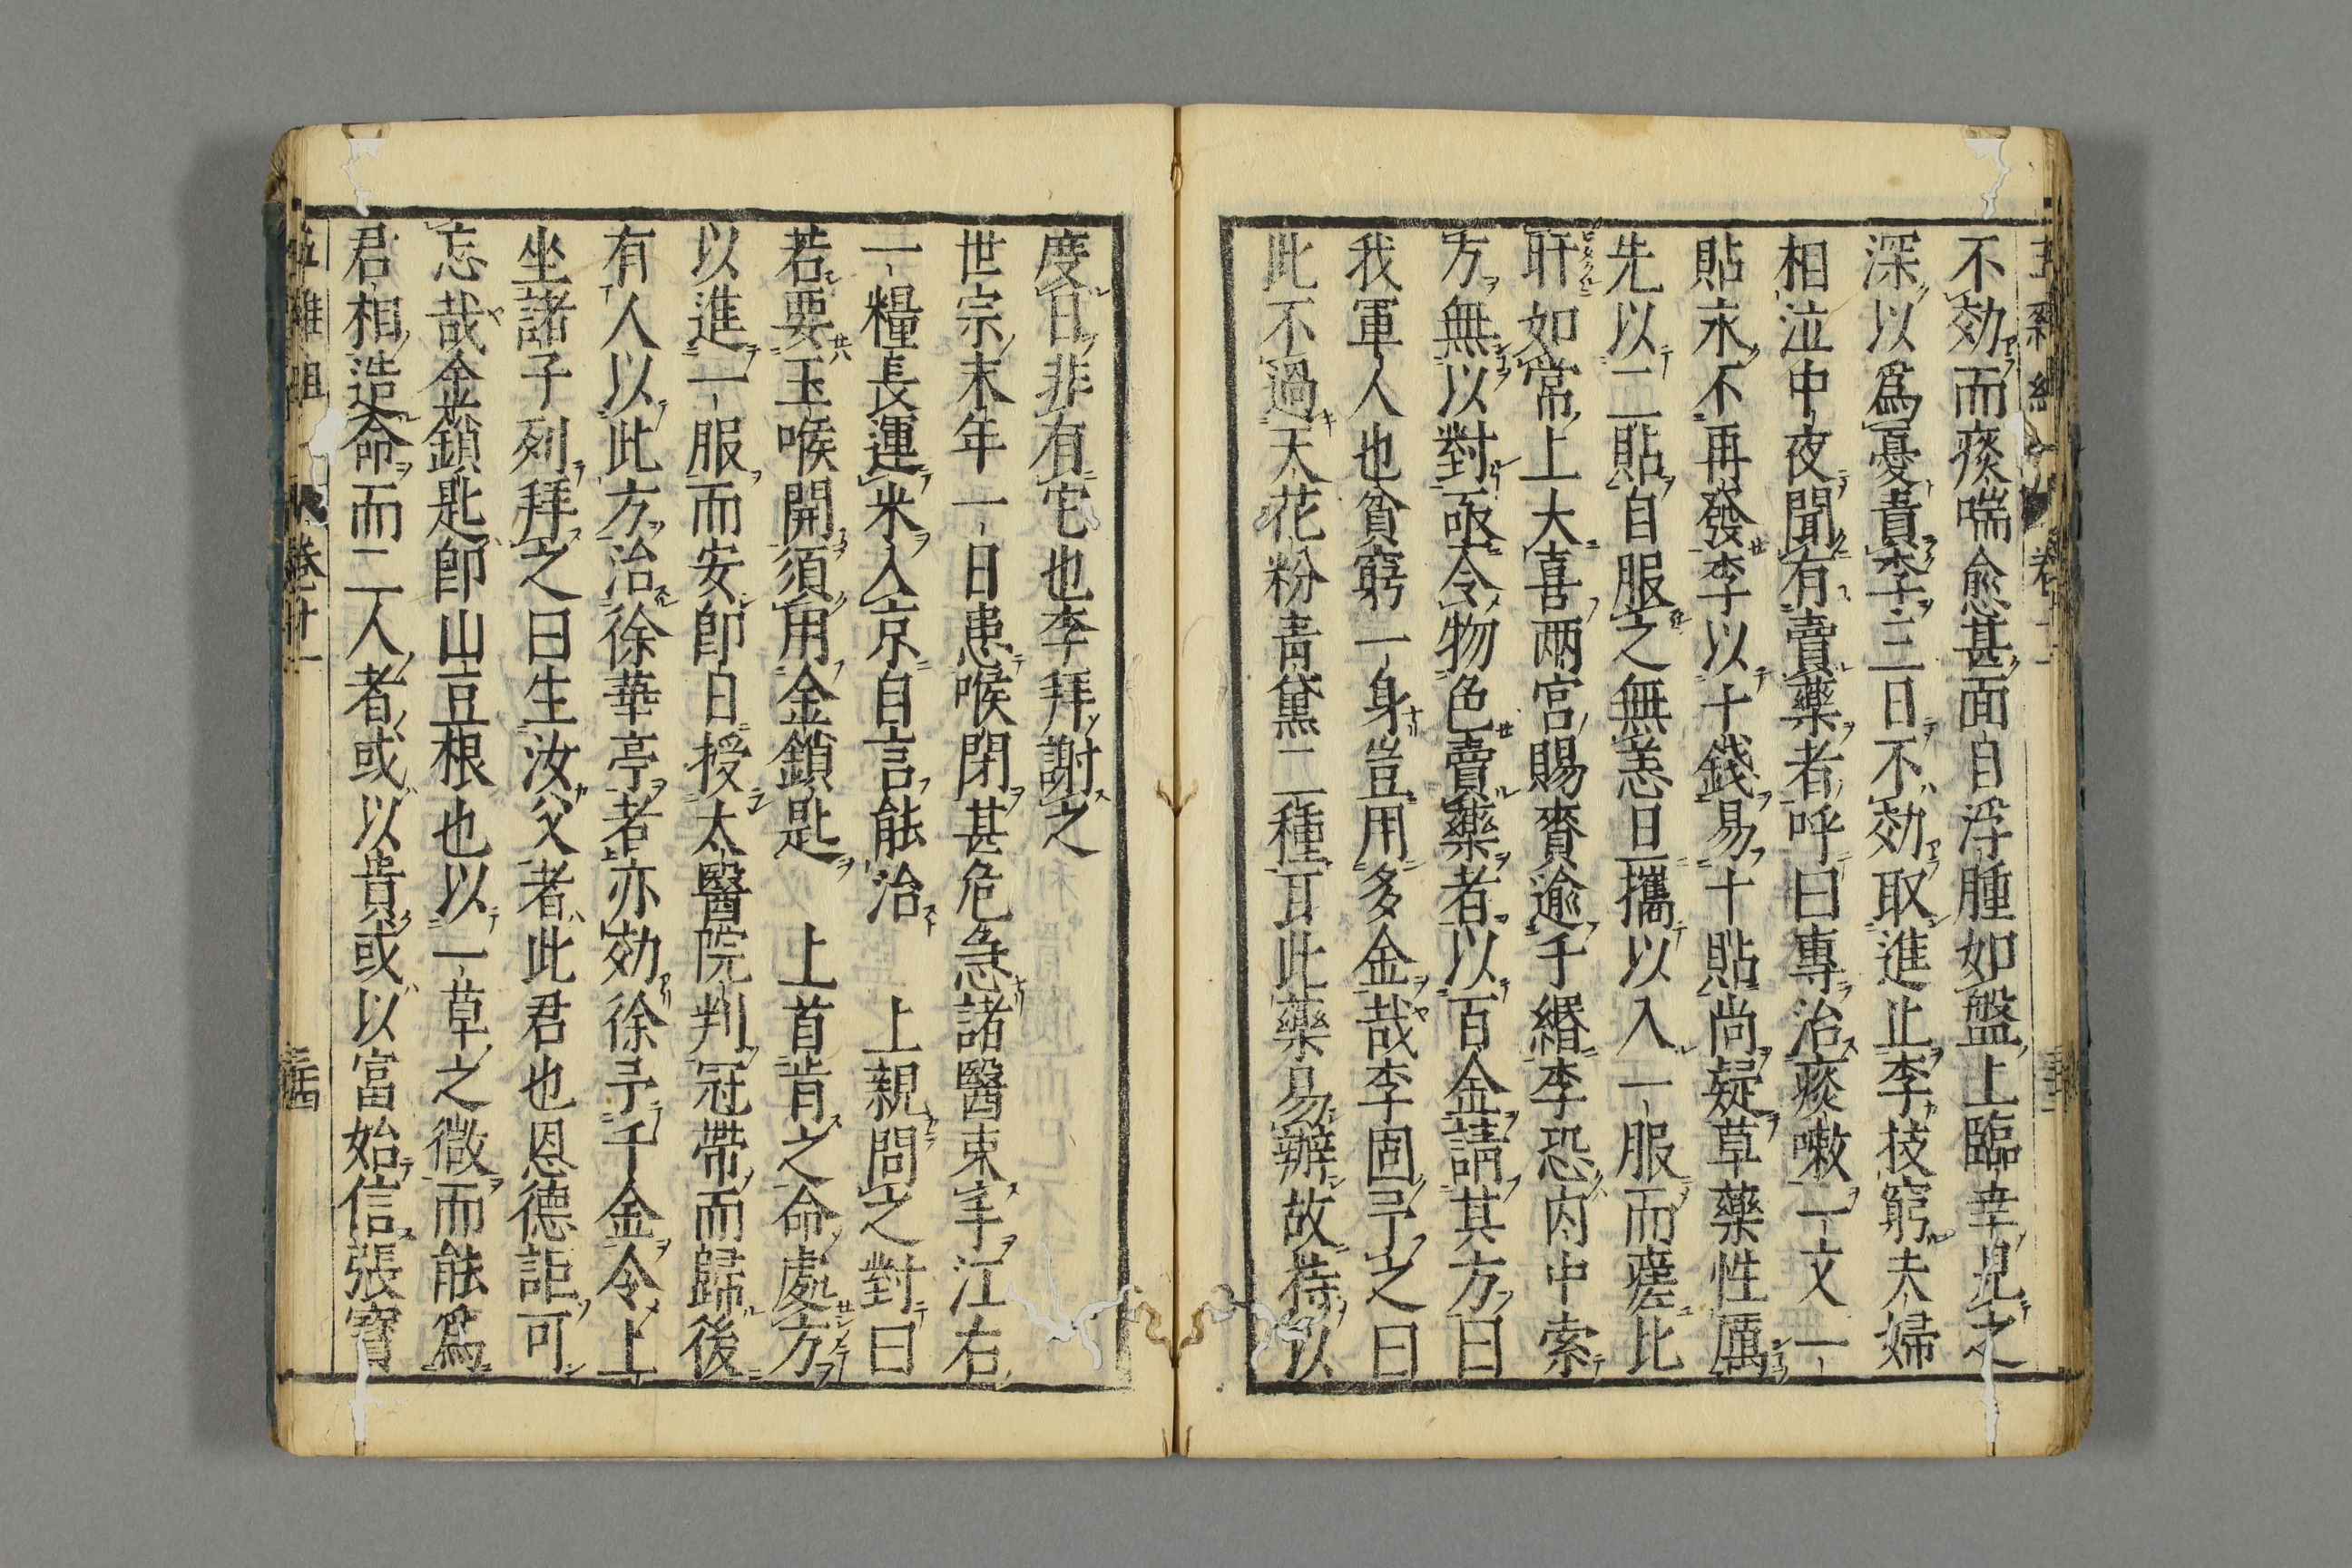 不効而痰喘愈甚面目浮腫如盤上臨幸見之
深以為憂責李三日不効取進止李技窮夫婦
相泣中夜聞有賣藥者呼曰專治痰嗽一文一
貼永不再發李以十錢易十貼尚疑草藥性厲
先以二貼自服之無恙旦攜以入一服而瘥比
旰如常上大喜兩宮賜賚逾千緡李恐內中索
方無以對亟令物色賣藥者以百金請其方曰
我軍人也貧窮一身豈用多金哉李固予之曰
此不過天花粉青黛二種耳此藥易辦故待以
度日非有它也李拜謝之
世宗末年一日患喉閉甚危急諸醫束手江右
一糧長運米入京自言能治　上親問之對曰
若要玉喉開須用金鎖匙　上首肯之命處方
以進一服而安即日授太醫院判冠帶而歸後
有人以此方治徐華亭者亦効徐予千金令上
坐諸子列拜之曰生汝父者此君也恩德詎可
忘哉金鎖匙卽山豆根也以一草之微而能為
君相造命而二人者或以貴或以富始信張寶
五雜俎　卷十一　三十四